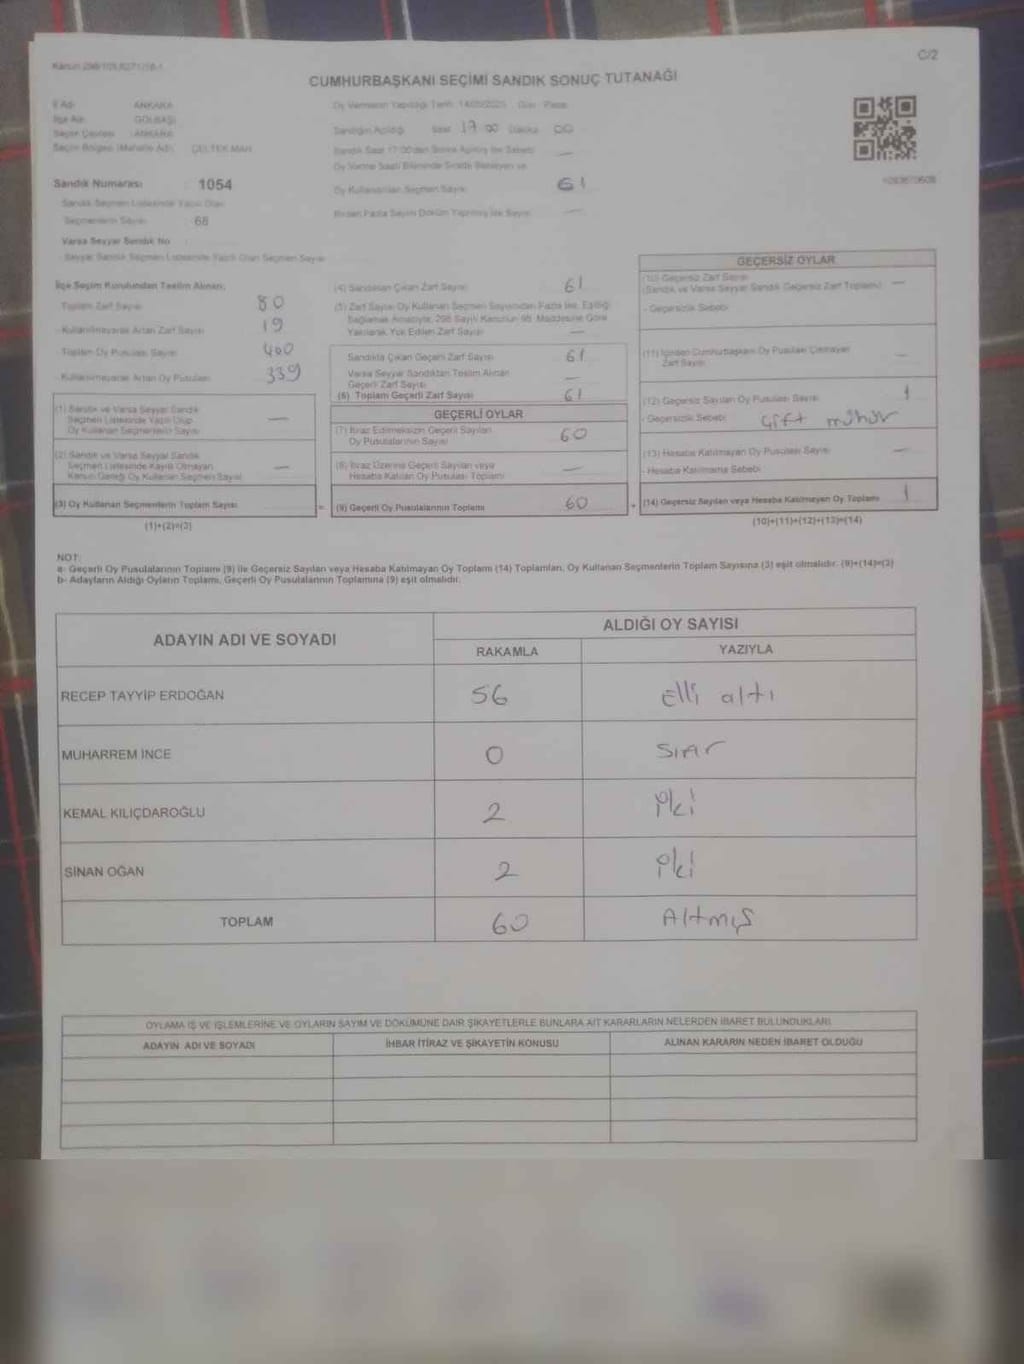 C/2
CUMHURBAŞKANI SEÇİMİ SANDIK SONUÇ TUTANAĞI
İl Adı ANKARA
İlçe Adı GÖLBAŞI
Seçim Çevresi ANKARA
Seçim Bölgesi (Mahalle Adı) ÇELTEK MAH.
Sandık Numarası : 1054
Sandık Seçmen Listesinde Yazılı Olan
Seçmenlerin Sayısı : 68
Varsa Seyyar Sandık No
- Seyyar Sandık Seçmen Listesinde Yazılı Olan Seçmen Sayısı
Oy Vermenin Yapıldığı Tarih: 14/05/2023 Gün: Pazar
Sandığın Açıldığı Saat 17:00 Dakika 00
Sandık Saat 17:00'den Sonra Açılmış İse Sebebi —
Oy Verme Saati Bitiminde Sırada Bekleyen ve
Oy Kullananların Seçmen Sayısı 61
Birden Fazla Sayım Döküm Yapılmış İse Sayısı —
İlçe Seçim Kurulundan Teslim Alınan;
Toplam Zarf Sayısı 80
- Kullanılmayarak Artan Zarf Sayısı 19
Toplam Oy Pusulası Sayısı 400
- Kullanılmayarak Artan Oy Pusulası 339
(1) Sandık ve Varsa Seyyar Sandık
Seçmen Listesinde Yazılı Olup
Oy Kullanan Seçmenlerin Sayısı —
(2) Sandık ve Varsa Seyyar Sandık
Seçmen Listesinde Kayıtlı Olmayan
Kanun Gereği Oy Kullanan Seçmen Sayısı —
(3) Oy Kullanan Seçmenlerin Toplam Sayısı
(1)+(2)=(3)
(4) Sandıktan Çıkan Zarf Sayısı 61
(5) Zarf Sayısı Oy Kullanan Seçmen Sayısından Fazla İse, Eşitliği
Sağlamak Amacıyla, 298 Sayılı Kanunun 98. Maddesine Göre
Yakılarak Yok Edilen Zarf Sayısı —
Sandıkta Çıkan Geçerli Zarf Sayısı 61
Varsa Seyyar Sandıktan Teslim Alınan
Geçerli Zarf Sayısı —
(6) Toplam Geçerli Zarf Sayısı 61
GEÇERLİ OYLAR
(7) İtiraz Edilmeksizin Geçerli Sayılan
Oy Pusulalarının Sayısı 60
(8) İtiraz Üzerine Geçerli Sayılan veya
Hesaba Katılan Oy Pusulası Toplamı —
= (9) Geçerli Oy Pusulalarının Toplamı 60
GEÇERSİZ OYLAR
(10) Geçersiz Zarf Sayısı
(Sandık ve Varsa Seyyar Sandık Geçersiz Zarf Toplamı) —
- Geçersizlik Sebebi
(11) İçinden Cumhurbaşkanı Oy Pusulası Çıkmayan
Zarf Sayısı —
(12) Geçersiz Sayılan Oy Pusulası Sayısı 1
- Geçersizlik Sebebi Çift mühür
(13) Hesaba Katılmayan Oy Pusulası Sayısı —
- Hesaba Katılmama Sebebi
+ (14) Geçersiz Sayılan veya Hesaba Katılmayan Oy Toplamı 1
(10)+(11)+(12)+(13)=(14)
NOT:
a- Geçerli Oy Pusulalarının Toplamı (9) ile Geçersiz Sayılan veya Hesaba Katılmayan Oy Toplamı (14) Toplamları, Oy Kullanan Seçmenlerin Toplam Sayısına (3) eşit olmalıdır. (9)+(14)=(3)
b- Adayların Aldığı Oyların Toplamı, Geçerli Oy Pusulalarının Toplamına (9) eşit olmalıdır.
ADAYIN ADI VE SOYADI ALDIĞI OY SAYISI
RAKAMLA YAZIYLA
RECEP TAYYİP ERDOĞAN 56 Elli altı
MUHARREM İNCE 0 Sıfır
KEMAL KILIÇDAROĞLU 2 İki
SİNAN OĞAN 2 İki
TOPLAM 60 Altmış
OYLAMA İŞ VE İŞLEMLERİNE VE OYLARIN SAYIM VE DÖKÜMÜNE DAİR ŞİKAYETLERLE BUNLARA AİT KARARLARIN NELERDEN İBARET BULUNDUKLARI
ADAYIN ADI VE SOYADI İHBAR İTİRAZ VE ŞİKAYETİN KONUSU ALINAN KARARIN NEDEN İBARET OLDUĞU